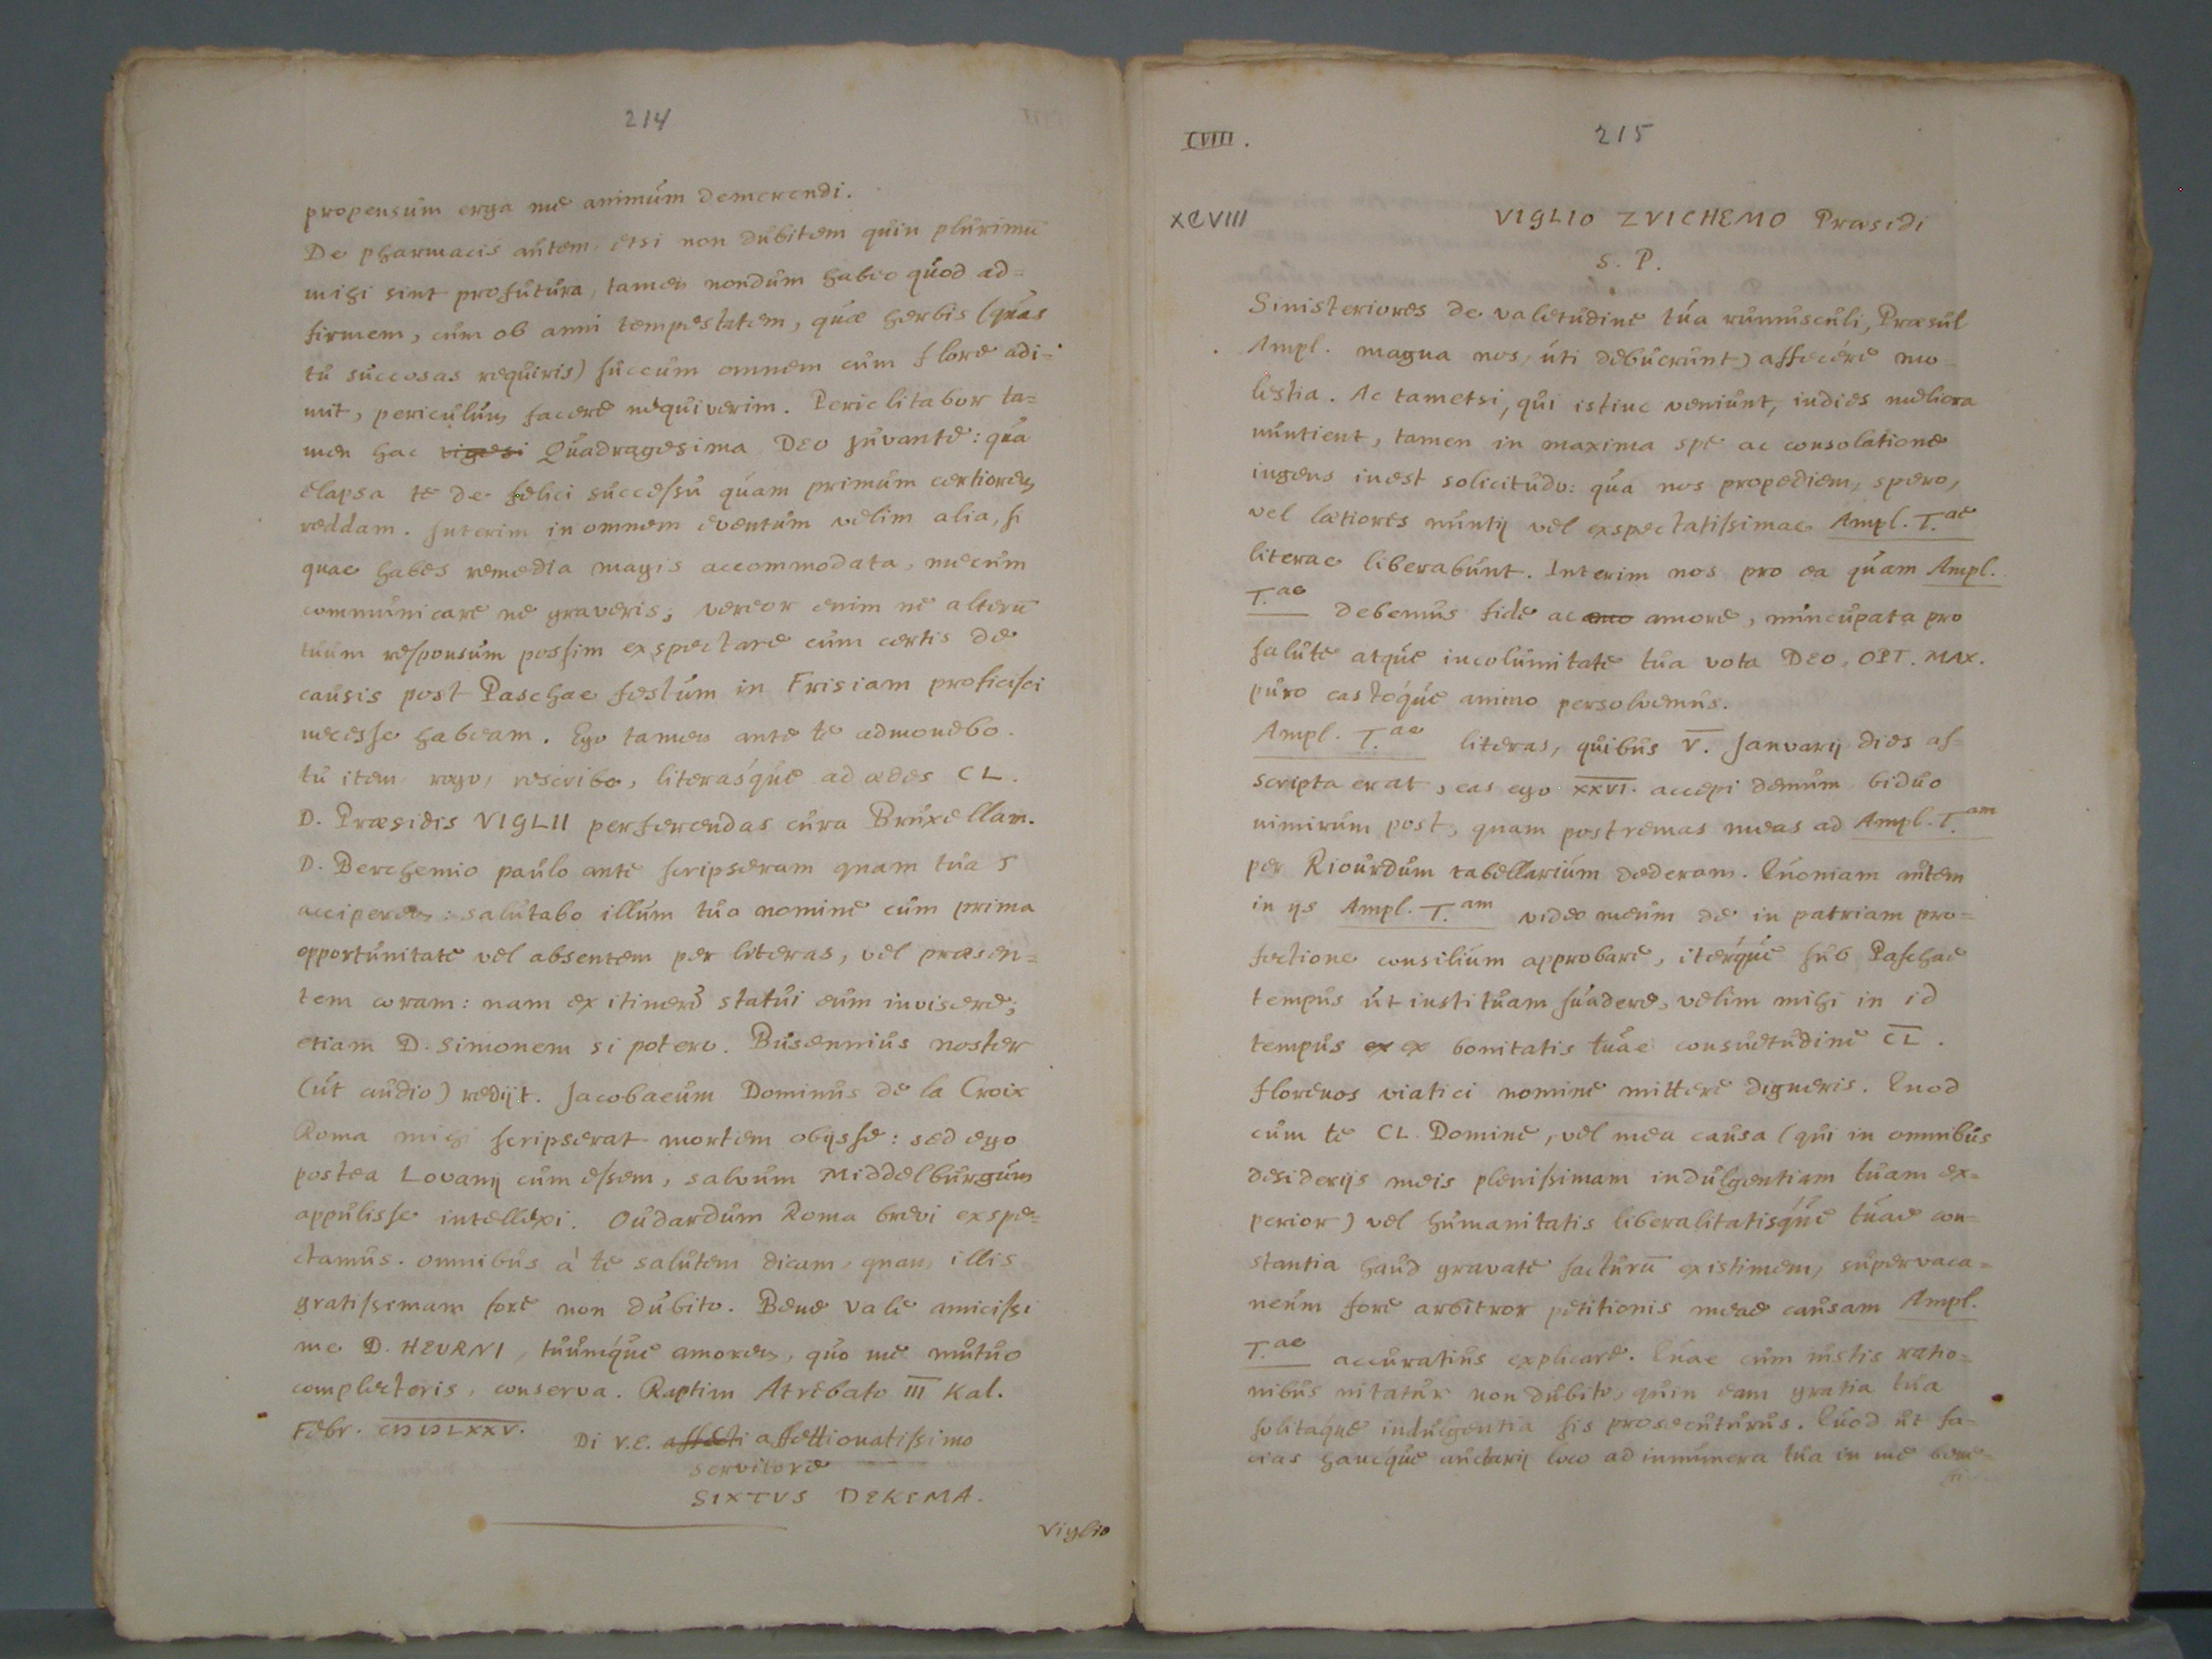 214
propensum erga me animum demerendi.
De pharmacis autem, etsi non dubitem quin plurimū
mihi sint profutura, tamen nondum habeo quod ad=
firmem, cum ob anni tempestatem, quæ herbis (quas
tu succosas requiris) succum omnem cum flore adi=
mit, periculum facere nequiverim. Periclitabor ta=
men hac Quadragesima DEO juvante: qua
elapsa te de felici successu quam primum certiorem
reddam. Interim in omnem eventum velim alia, si
quae habes remedia magis accommodata, mecum
communicare ne graveris; vereor enim ne alterū
tuum responsum possim exspectare cum certis de
causis post Paschae festum in Frisiam proficisci
necesse habeam. Ego tamen ante te admonebo.
tu item, rogo, rescribe, literasque ad ædes CL.
D. Præsidis VIGLII perferendas cura Bruxellam.
D. Berchemio paulo ante scripseram quam tuas
acciperem: salutabo illum tuo nomine cum prima
opportunitate vel absentem per literas, vel præsen=
tem coram: nam ex itinere statui eum invisere;
etiam D. Simonem si potero. Busennius noster
(ut audio) redijt. Jacobaeum Dominus de la Croix
Roma mihi scripserat mortem obijsse: sed ego
postea Lovanij cum essem, salvum Middelburgum
appulisse intellexi. Oudardum Roma brevi exspe=
ctamus. omnibus à te salutem dicam, quam illis
gratissimam fore non dubito. Bene vale amicissi
me D. HEURNI, tuumque amorem, quo me mutuo
complecteris, conserva. Raptim Atrebato III Kal.
Febr. CIƆ IƆ LXXV.
Di V.E. affecti affettionatissimo
servitore
SIXTVS DEKEMA.
Viglio
CVIII.
215
XCVIII
VIGLIO ZVICHEMO Præsidi
S. P.
Sinisteriores de valetudine tua rumusculi, Præsul
Ampl. magna nos, uti debuerunt) affecére mo
lestia. Ac tametsi, qui istinc veniunt, indies meliora
nuntient, tamen in maxima spe ac consolatione
ingens inest solicitudo: qua nos propediem, spero,
vel lætiores nuntij vel exspectatissimae Ampl. T.ae
literae liberabunt. Interim nos pro ea quam Ampl.
T.ae debemus fide ac amo amore, nuncupata pro
salute atque incolumitate tua vota DEO. OPT. MAX.
puro castoque animo persolvemus.
Ampl. T.ae literas, quibus V. Januarij dies as=
scripta erat, eas ego XXVI. accepi demum biduo
nimirum post, quam postremas meas ad Ampl. T.am
per Riourdum tabellarium dederam. Quoniam autem
in ijs Ampl. T.am video meum de in patriam pro=
fectione consilium approbare, iterque sub Paschae
tempus ut instituam suadere, velim mihi in id
tempus ex ex bonitatis tuae consuetudine CL.
florenos viatici nomine mittere digneris. Quod
cum te CL. Domine, vel mea causa (qui in omnibus
desiderijs meis plenissimam indulgentiam tuam ex=
perior) vel humanitatis liberalitatisque tuae con=
stantia haud gravate facturū existimem, supervaca=
neum fore arbitror petitionis meae causam Ampl.
T.ae accuratius explicare. Quae cum iustis ratio=
nibus nitatur non dubito, quin eam gratia tua
solitaque indulgentia sis prosecuturus. Quod ut fa=
cias hancque auctarij loco ad innumera tua in me bene=
fi